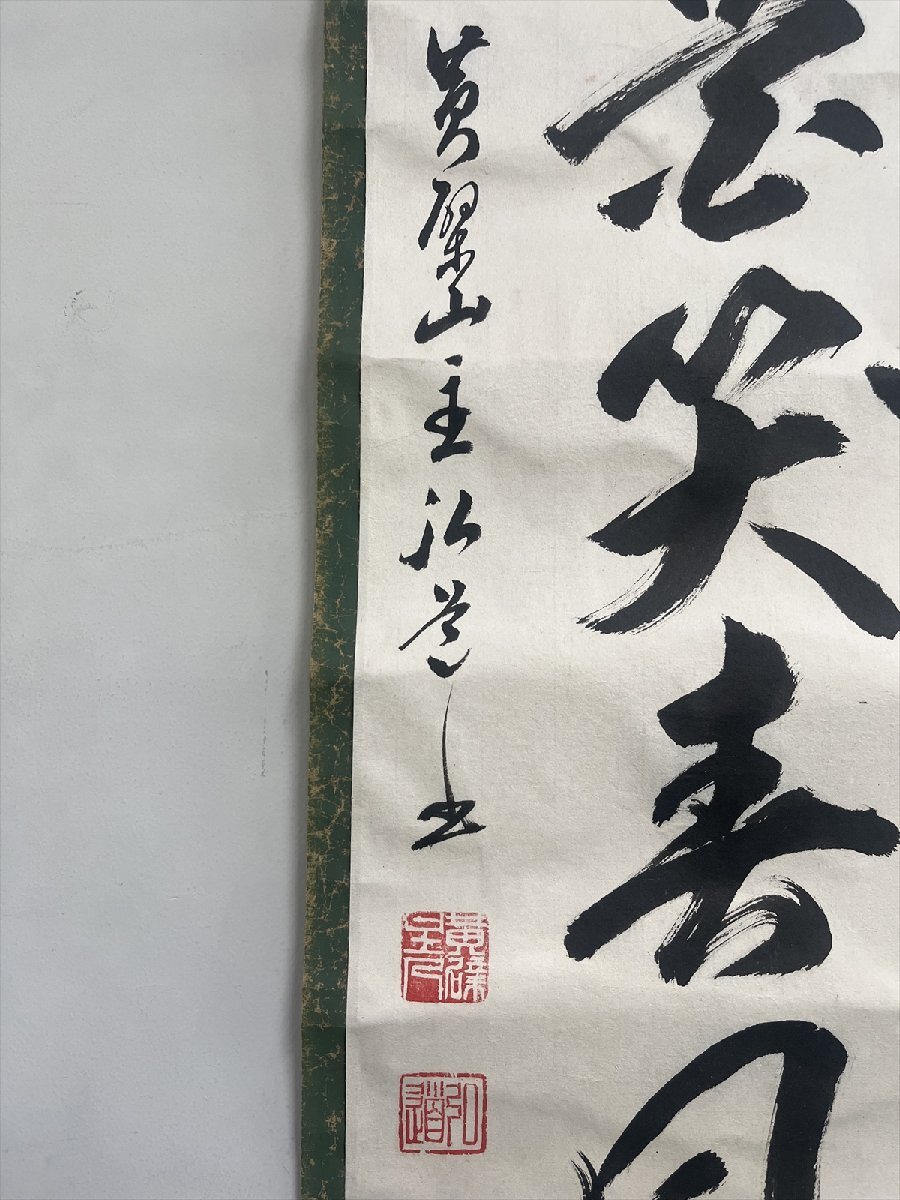 笑春
黄檗山主弘道書
黄檗主人
弘道